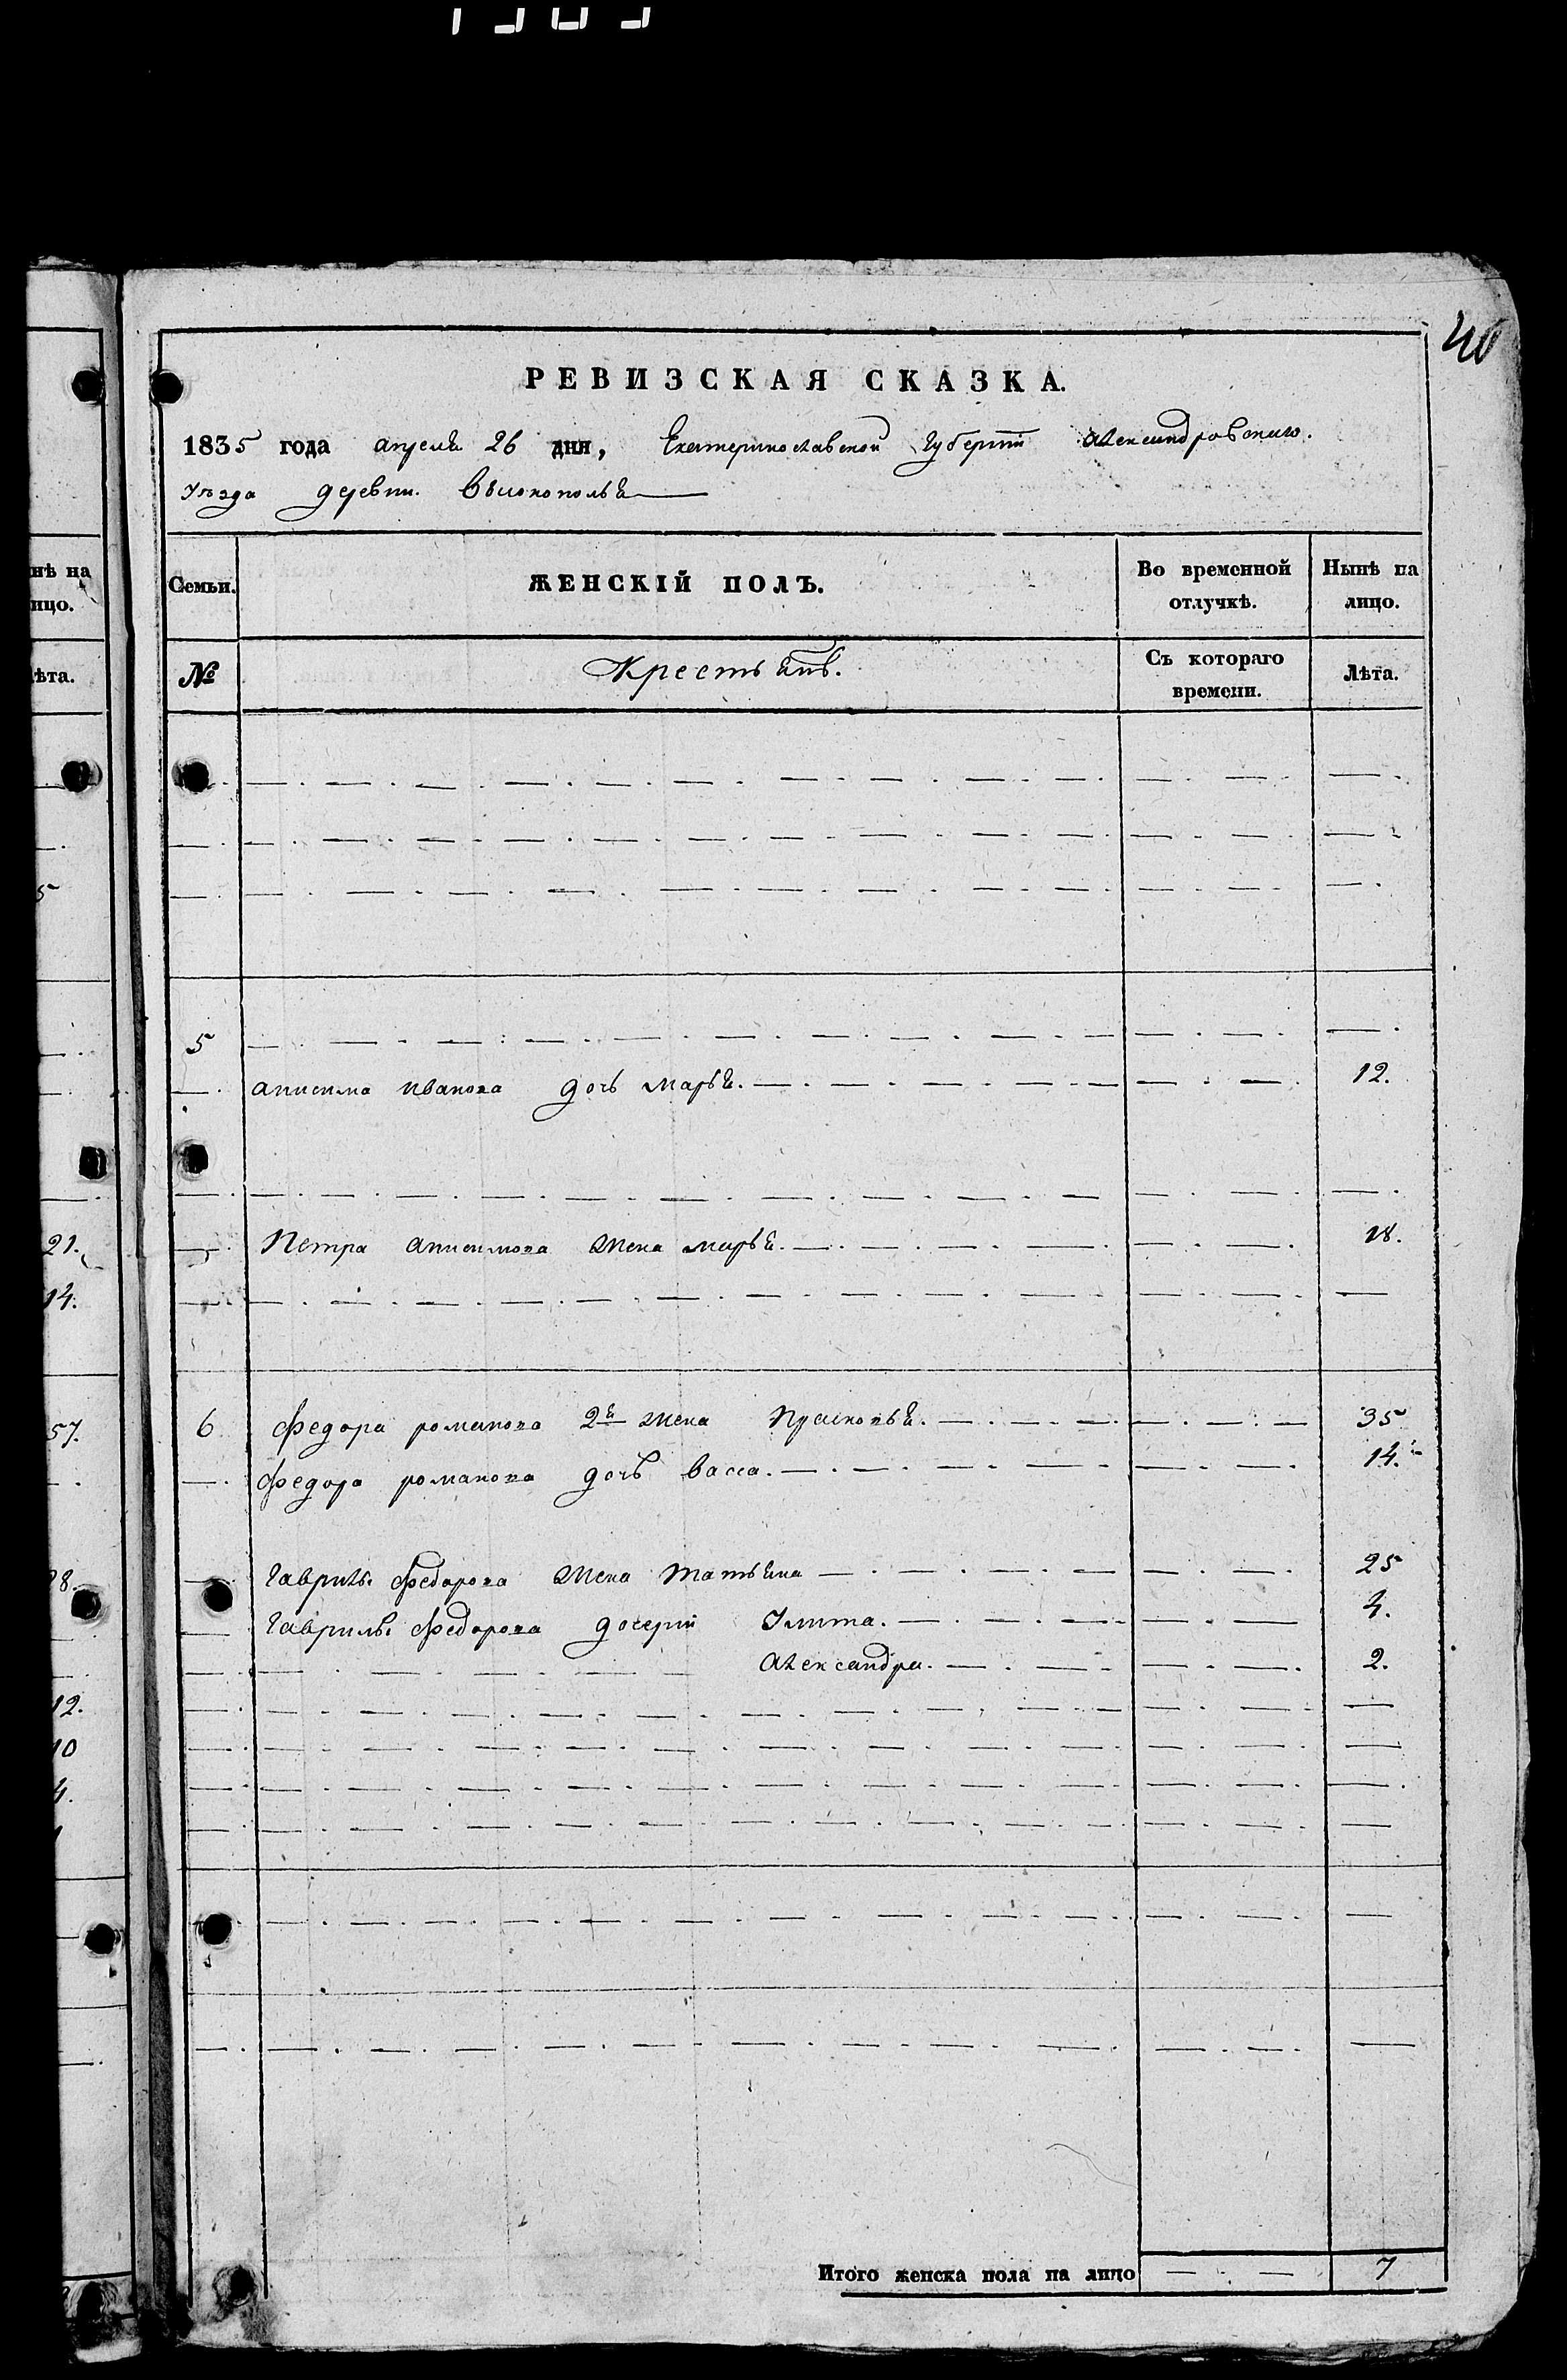 40
РЕВИЗСКАЯ СКАЗКА.
1835 года апреля 26 дня, Екатеринославской Губернїи Александровского.
Уѣзда деревни. Высокополья
Семьи. ЖЕНСКІЙ ПОЛЪ. Во временной отлучкѣ. Нынѣ на лицо.
№ Крестьянъ. Съ котораго времени. Лѣта.
5
анисима иванова дочь марья. 12.
Петра анисимова жена марья. 18.
6 Федора романова 2я жена Прасковья. 35
Федора романова дочь васса. 14.
Гаврилы Федорова жена татьяна 25
Гаврилы Федорова дочери Улита. 4.
александра. 2.
Итого женска пола на лицо 7
нѣ на
ицо.
ѣта.
5
21.
14.
57.
28.
12.
10
4.